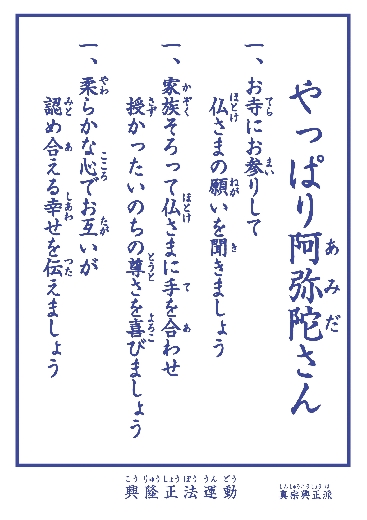 やっぱり阿弥陀さん
一、お寺にお参りして
仏さまの願いを聞きましょう
一、家族そろって仏さまに手を合わせ
授かったいのちの尊さを喜びましょう
一、柔らかな心でお互いが
認め合える幸せを伝えましょう
興隆正法運動
真宗興正派